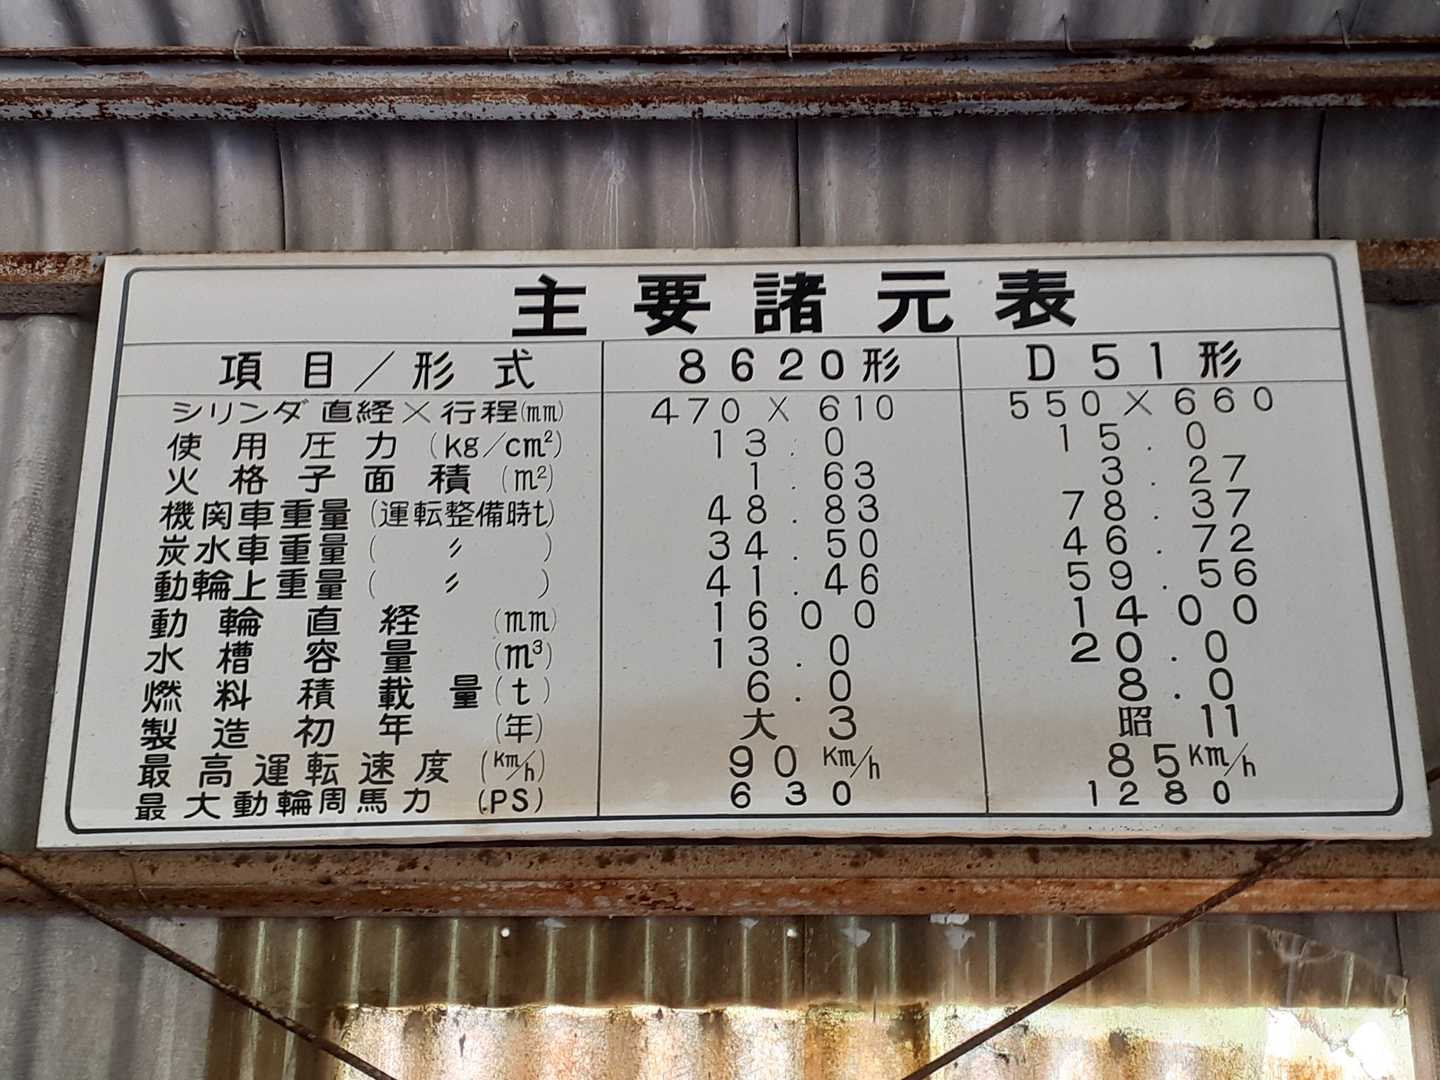 主要諸元表
項目/形式 8620形 D51形
シリンダ直径×行程(mm) 470×610 550×660
使用圧力(kg/cm²) 13.0 15.0
火格子面積(m²) 1.63 3.27
機関車重量(運転整備時t) 48.83 78.37
炭水車重量(〃) 34.50 46.72
動輪上重量(〃) 41.46 59.56
動輪直経(mm) 1600 1400
水槽容量(m³) 13.0 20.0
燃料積載量(t) 6.0 8.0
製造初年(年) 大3 昭11
最高運転速度(km/h) 90km/h 85km/h
最大動輪周馬力(PS) 630 1280